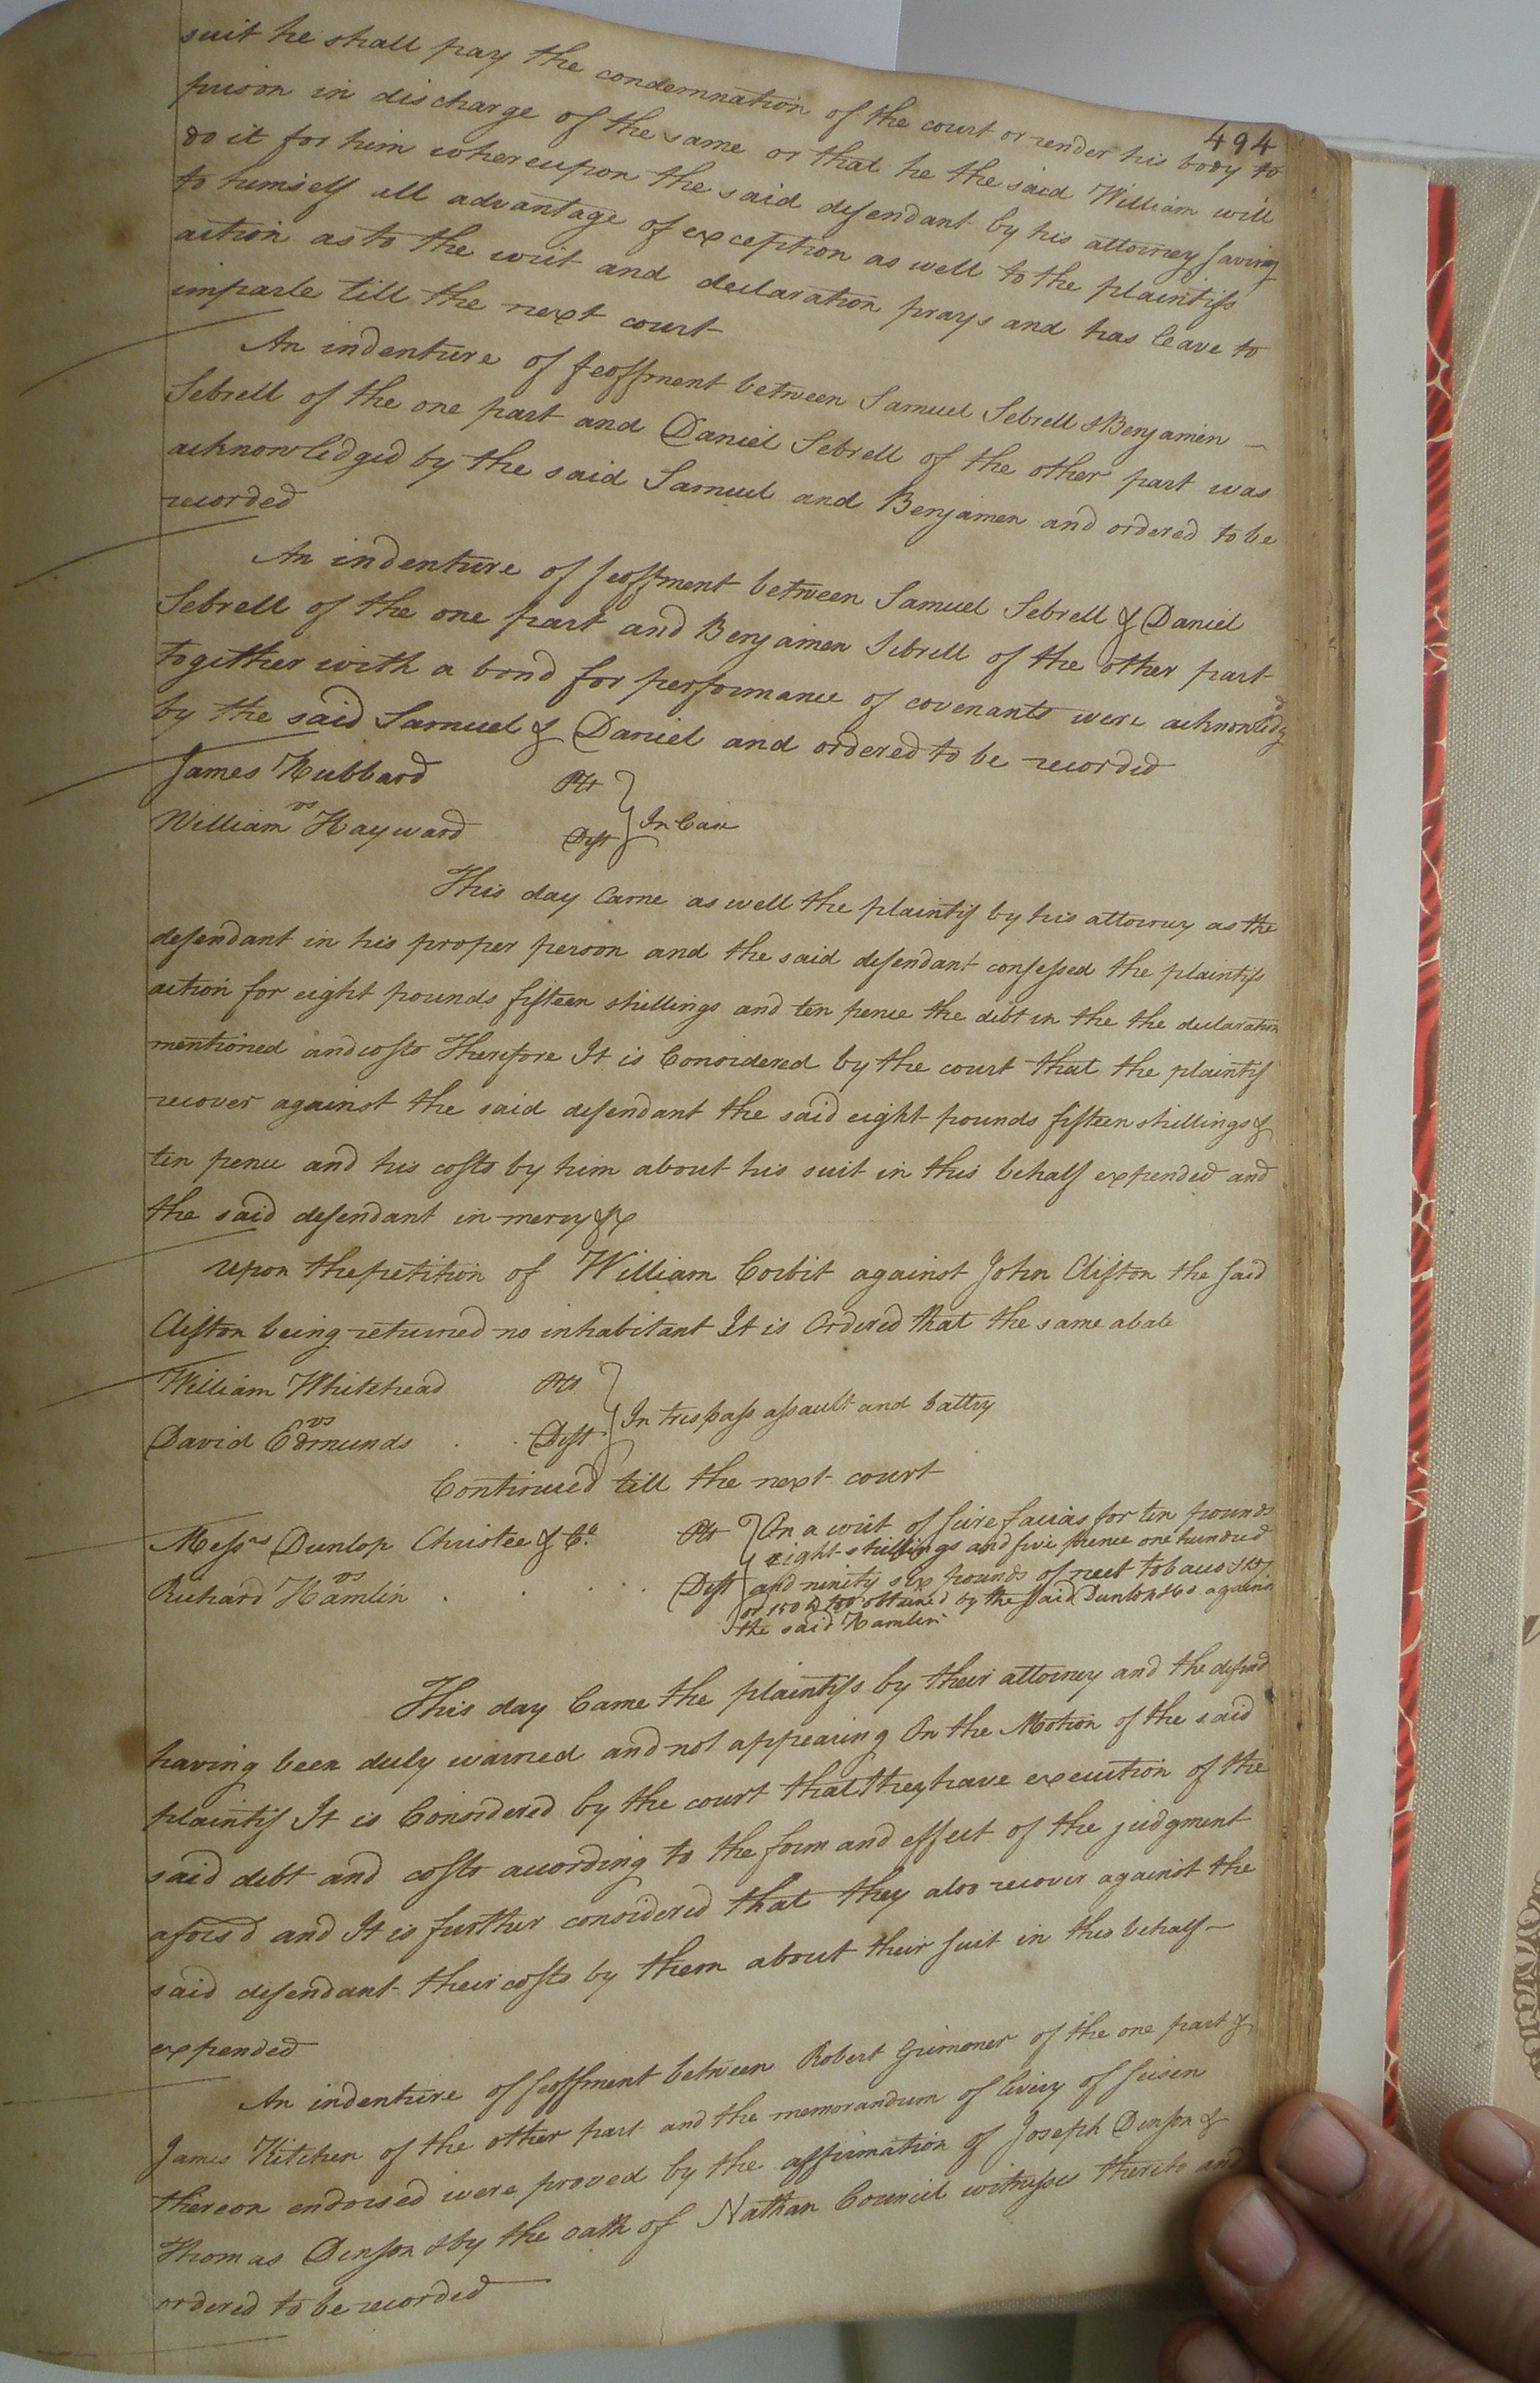 494
suit he shall pay the condemnation of the court or render his body to
prison in discharge of the same or that he the said William will
do it for him whereupon the said defendant by his attorney saving
to himself all advantage of exception as well to the plaintifs
action as to the writ and declaration prays and has leave to
imparle till the next court
An indenture of feoffment between Samuel Sebrell & Benjamin
Sebrell of the one part and Daniel Sebrell of the other part was
acknowledged by the said Samuel and Benjamen and ordered to be
recorded
An indenture of feoffment between Samuel Sebrell & Daniel
Sebrell of the one part and Benjamen Sebrell of the other part
together with a bond for performance of covenants were acknowledgd
by the said Samuel & Daniel and ordered to be recorded
James Hubbard Plt
vs In Case
William Hayward Deft
This day Came as well the plaintif by his attorney as the
defendant in his proper person and the said defendant confessed the plaintifs
action for eight pounds fifteen shillings and ten pence the debt in the the declaration
mentioned and costs Therefore It is Considered by the court that the plaintif
recover against the said defendant the said eight pounds fifteen shillings &
ten pence and his costs by him about his suit in this behalf expended and
the said defendant in mercy &c
Upon the petition of William Corbit against John Clifton the said
Clifton being returned no inhabitant It is Ordered that the same abate
William Whitehead Plt
vs In trespass assault and battry
David Edmunds Deft
Continued till the next court
Messrs Dunlop Christee & Co. Plt
vs
Richard Hamlin Deft
On a writ of scire facias for ten pounds
eight shillings and five pence one hundred
and ninety six pounds of neet tobacco &
or 150 obtained by the said Dunlop &Co against
the said Hamlin
This day Came the plaintifs by their attorney and the defend
having been duly warned and not appearing On the Motion of the said
plaintif It is Considered by the court that they have execution of the
said debt and costs according to the form and effect of the judgment
afores'd and It is further considered that they also recover against the
said defendant their costs by them about their suit in this behalf
expended
An indenture of feoffment between Robert Grimmer of the one part &
James Kitchen of the other part and the memorandum of livery of seisen
thereon endorsed were proved by the affirmation of Joseph Denson &
Thomas Denson & by the oath of Nathan Council witnesses thereto and
ordered to be recorded